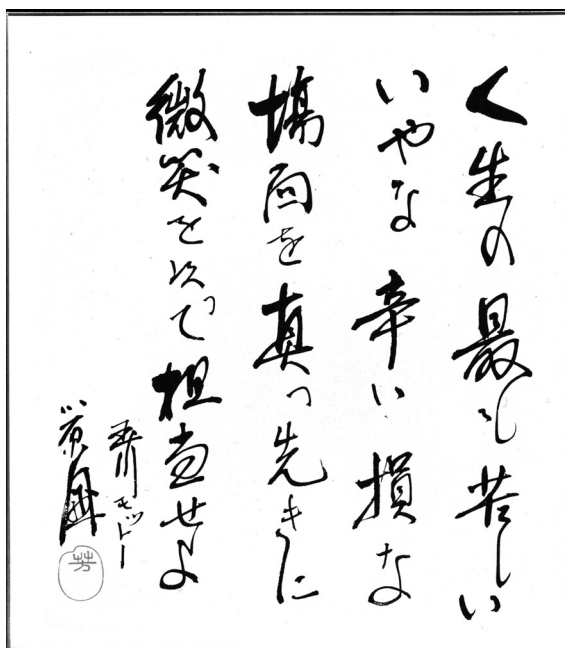 人生の最も苦しい
いやな辛い損な
場面を真っ先きに
微笑を以って担当せよ
玉川モットー
小原國芳
芳